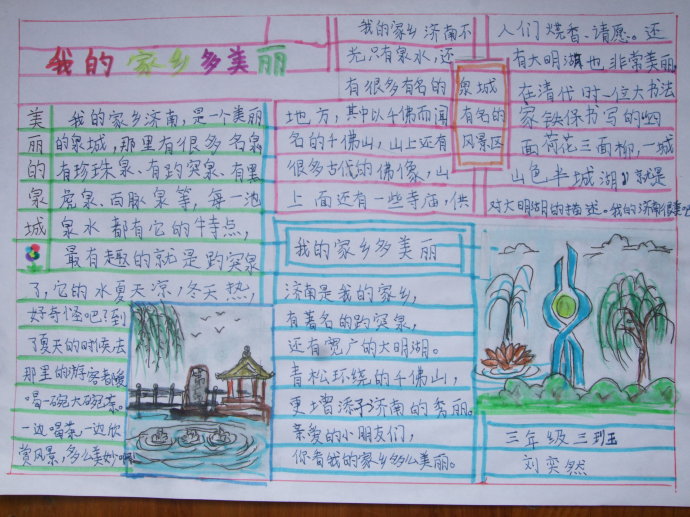 我的家乡多美丽
美丽的泉城
我的家乡济南,是一个美丽
的泉城,那里有很多名泉
有珍珠泉、有趵突泉、有黑
虎泉、五脉泉等,每一池
泉水都有它的特点,
最有趣的就是趵突泉
了,它的水夏天凉,冬天热,
好奇怪吧了到
了夏天的时候去
那里的游客都爱
喝一碗大碗茶。
一边喝茶一边欣
赏风景,多么美妙啊
我的家乡济南不
光只有泉水,还
有很多有名的
地方,其中以千佛而闻
名的千佛山,山上还有
很多古代的佛像,山
上面还有一些寺庙,供
泉城
有名的
风景区
人们烧香、请愿。还
有大明湖也非常美丽。
在清代时一位大书法
家铁保书写的四
面荷花三面柳,一城
山色半城湖》就是
对大明湖的描述。我的济南很美吧
我的家乡多美丽
济南是我的家乡,
有著名的趵突泉,
还有宽广的大明湖。
青松环绕的千佛山,
更增添了济南的秀丽。
亲爱的小朋友们,
你看我的家乡多么美丽。
三年级三班
刘奕然